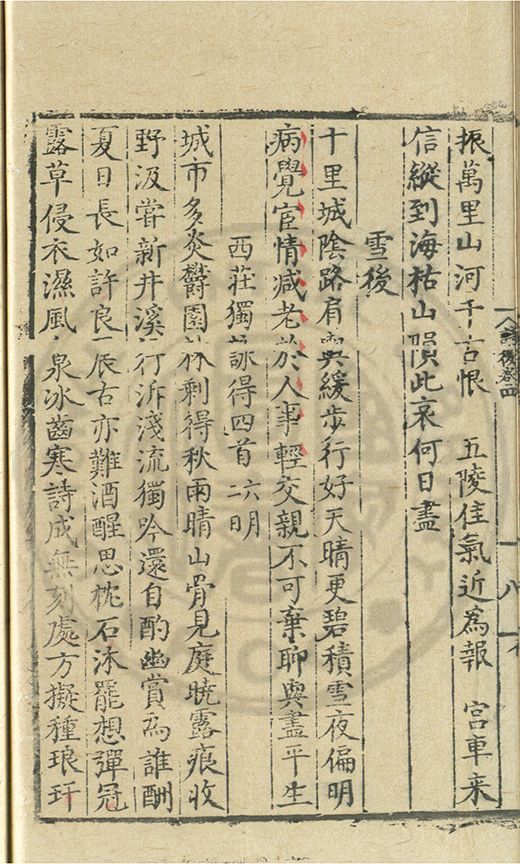 振萬里山河千古恨 五陵佳氣近為報 宮車来
信縱到海枯山隕此哀何日盡
雪後
十里城陰路肩輿緩步行好天晴更碧積雪夜偏明
病覺宦情减老於人事輕交親不可棄聊與盡平生
西莊獨詠得四首
城市多炎欝園林剩得秋雨晴山骨見庭曉露痕收
野汲甞新井溪行泝淺流獨吟還自酌幽賞為誰酬
夏日長如許良辰古亦難酒醒思枕石沐罷想彈冠
露草侵衣濕風泉冰齒寒詩成無刻處方擬種琅玕